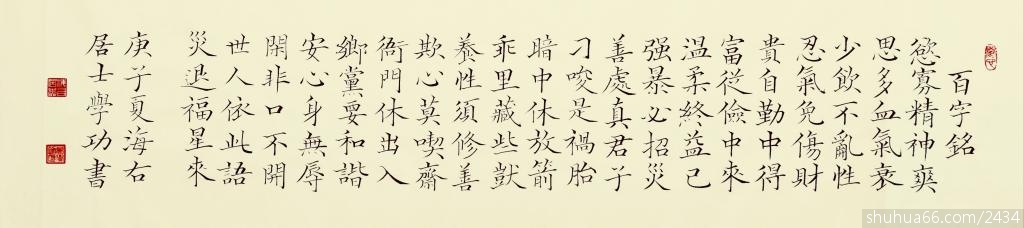 百字銘
慾寡精神爽
思多血氣衰
少飲不亂性
忍氣免傷財
貴自勤中得
富從儉中來
温柔終益己
强暴必招災
善處真君子
刁唆是禍胎
暗中休放箭
乖里藏些獃
養性須修善
欺心莫喫齋
衙門休出入
鄉黨要和諧
安心身無辱
閑非口不開
世人依此語
災退福星來
庚子夏海右
居士學功書
shuhua66.com/2434